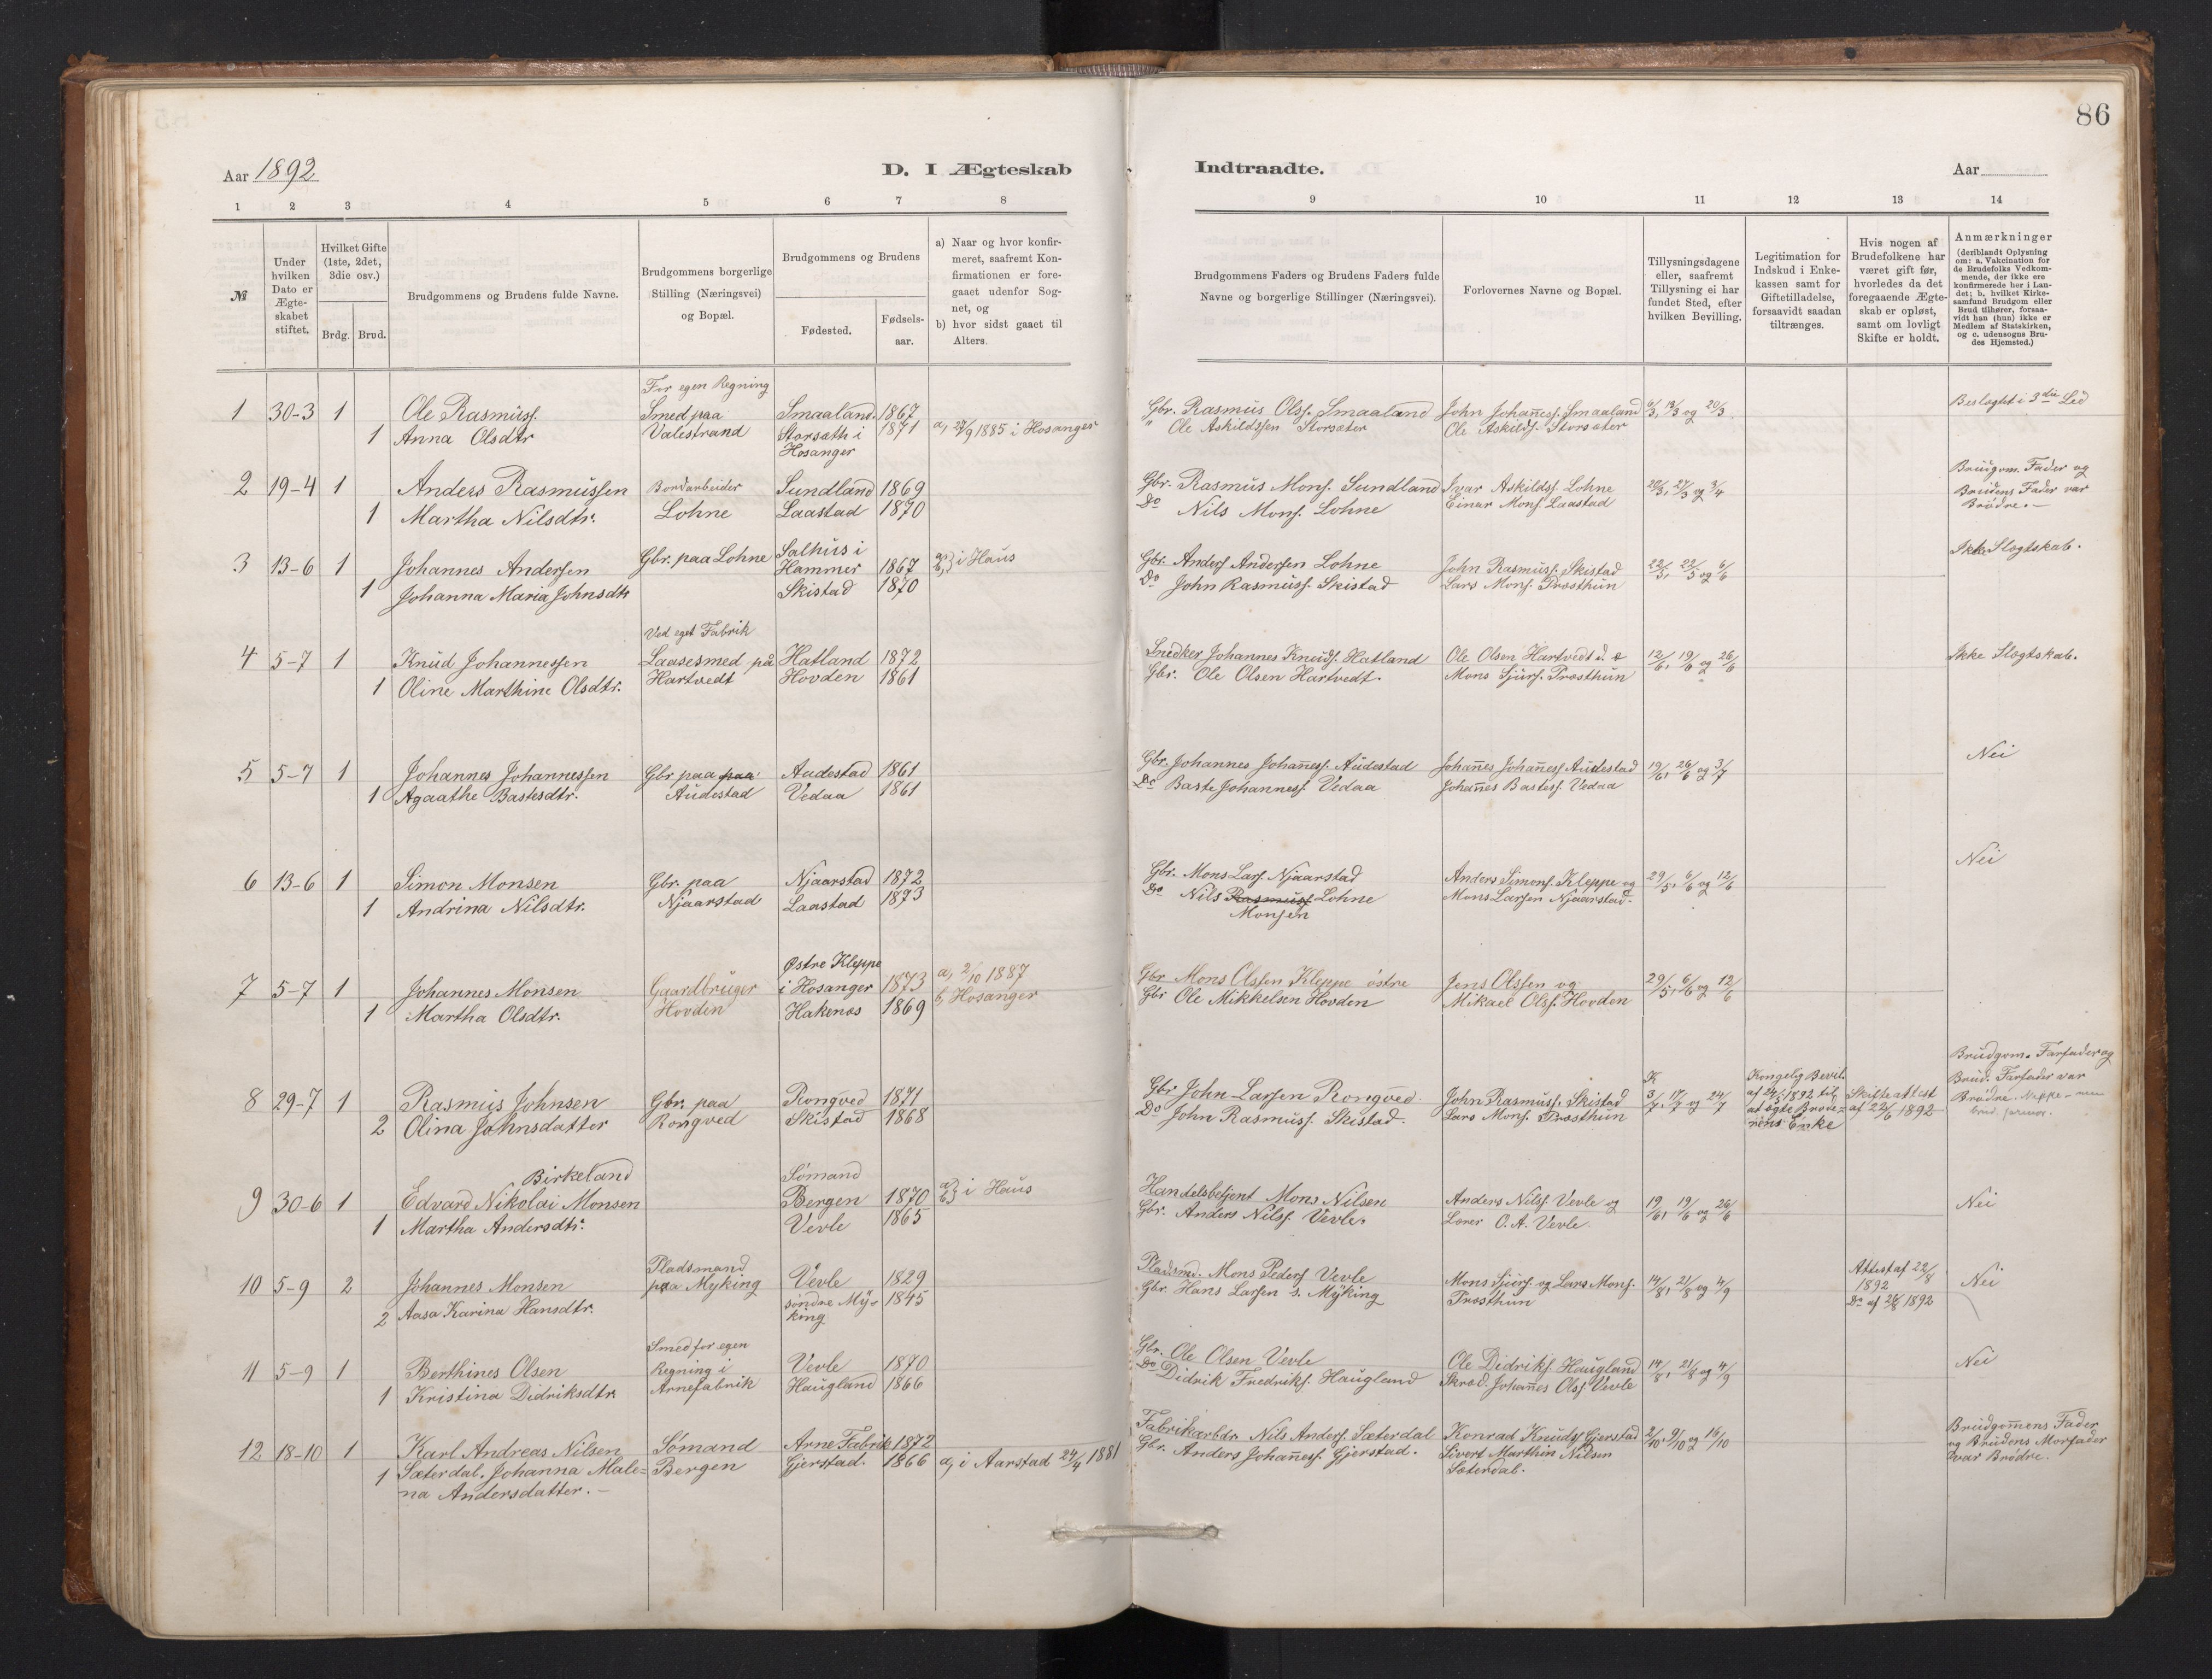 86
Aar 1892
D. I Ægteskab
Indtraadte.
Aar
1 2 3 4 5 6 7 8
9 10 11 12 13 14
№
Under hvilken Dato er Ægteskabet stiftet.
Hvilket Gifte (1ste, 2det, 3die osv.)
Brdg. Brud.
Brudgommens og Brudens fulde Navne.
Brudgommens borgerlige Stilling (Næringsvei) og Bopæl.
Brudgommens og Brudens
Fødested.
Fødselsaar.
a) Naar og hvor konfirmeret, saafremt Konfirmationen er foregaaet udenfor Sognet, og
b) hvor sidst gaaet til Alters.
Brudgommens Faders og Brudens Faders fulde Navne og borgerlige Stillinger (Næringsvei).
Forlovernes Navne og Bopæl.
Tillysningsdagene eller, saafremt Tillysning ei har fundet Sted, efter hvilken Bevilling.
Legitimation for Indskud i Enkekassen samt for Giftetilladelse, forsaavidt saadan tiltrænges.
Hvis nogen af Brudefolkene har været gift før, hvorledes da det foregaaende Ægteskab er opløst, samt om lovligt Skifte er holdt.
Anmærkninger (deriblandt Oplysning om: a. Vakcination for de Brudefolks Vedkommende, der ikke ere konfirmerede her i Landet; b. hvilket Kirkesamfund Brudgom eller Brud tilhører, forsaavidt han (hun) ikke er Medlem af Statskirken, og c. udensogns Brudes Hjemsted.)
For egen Regning
1 30-3 1 Ole Rasmuss. Smed paa Smaaland. 1867
1 Anna Olsdtr Valestrand Storsæth i 1871 a, 27/9 1885 i Hosanger
Hosanger
Gbr. Rasmus Olss. Smaaland John Johan̄ess. Smaaland 6/3, 13/3 og 20/3 Beslægtet i 3die Led
" Ole Askildssen Storsæter Ole Askilds. Storsæter
2 19-4 1 Anders Rasmussen Bordarbeider Sundland 1869
1 Martha Nilsdtr. Lohne Laastad 1870
Gbr. Rasmus Mons. Sundland Ivar Askildss. Lohne 20/3, 27/3 og 3/4
Do Nils Mons. Lohne Einar Mons. Laastad
Brudgom. Fader og
Brudens Fader var
Brödre.-
3 13-6 1 Johannes Andersen Gbr. paa Lohne Salhus i
Hammer 1867 a, b, i Haus
1 Johanna Maria Johnsdtr Skistad 1870
Gbr. Anders Andersen Lohne John Rasmuss. Skistad 22/5, 22/5 og 6/6 Ikke Slægtskab.
Do John Rasmuss. Skistad Lars Mons. Træsthun
Ved eget Fabrik
4 5-7 1 Knud Johannessen Laasesmed på Hatland 1872
1 Oline Marthine Olsdtr. Hartvedt Hovden 1861
Snedker Johannes Knuds. Hatland Ole Olsen Hartvedt 12/6, 19/6 og 26/6 Ikke Slægtskab.
Gbr. Ole Olsen Hartvedt. Mons Sjurs. Træsthun
5 5-7 1 Johannes Johannessen Gbr. paa paa Audestad 1861
1 Agaathe Bastesdtr. Audestad Vedaa 1861
Gbr. Johannes Johan̄ess. Audestad Johan̄es Johan̄ess. Audestad 19/6, 26/6 og 3/7 Nei
Do Baste Johanness. Vedaa Johan̄es Bastess. Vedaa
6 13-6 1 Simon Monsen Gbr. paa Njaarstad 1872
1 Andrina Nilsdtr. Njaarstad Laastad 1873
Gbr. Mons Lars. Njaarstad Anders Simons. Kleppe og 29/5, 6/6 og 12/6 Nei
Do Nils Rasmuss. Lohne Mons Larsen Njaarstad.
Monsen
Østre Kleppe
7 5-7 1 Johannes Monsen Gaardbruger i Hosanger 1873 a, 2/10 1887
1 Martha Olsdtr. Hovden Hakenæs 1869 b, Hosanger
Gbr Mons Olssen Kleppe østre Jens Olssen og 29/5, 6/6 og 12/6
Gbr Ole Mikkelsen Hovden Mikael Olss. Hovden
8 29-7 1 Rasmus Johnsen Gbr. paa Rongved 1871
2 Olina Johnsdatter Rongved Skistad 1868
Gbr. John Larsen Rongved. John Rasmuss. Skistad K 3/7, 17/7 og 24/7
Do John Rasmuss. Skistad. Lars Mons. Træsthun
Kongelig Bevil.
af 24/5 1892 til
at ægte Brode-
rens Enke
Skifteattest
af 22/6 1892
Brudgom. Farfader og
Brud. Farfader var
Brödre.
Birkeland
9 30-6 1 Edvard Nikolai Monsen Sømand
Bergen 1870 a, b, i Haus
1 Martha Andersdtr. Vevle 1865
Handelsbetjent Mons Nilsen Anders Nilss. Vevle og 19/6, 19/6 og 26/6 Nei
Gbr. Anders Nilss. Vevle. Lærer O. A. Vevle.
10 5-9 2 Johannes Monsen Pladsmand paa Myking Vevle 1829
2 Aasa Karina Hansdtr. søndre My-king 1845
Pladsmd. Mons Peders. Vevle Mons Sjurs. og Lars Mons. 14/8, 21/8 og 4/9
Gbr. Hans Larsen s. Myking Træsthun
Attest af 22/8
1892
Do af 26/8 1892
Nei
Smed for egen
11 5-9 1 Berthines Olsen Regning i Vevle 1870
1 Kristina Didriksdtr. Arnefabrik Haugland 1866
Gbr. Ole Olsen Vevle Ole Didriks. Haugland 14/8, 21/8 og 4/9 Nei
Do Didrik Fredriks. Haugland Skræd. Johan̄es Olss. Vevle
12 18-10 1 Karl Andreas Nilsen Sömand Arne Fabrik 1872
1 Sæterdal. Johanna Male- Bergen Gjerstad. 1866 a, i Aarstad 24/4 1881
na Andersdatter.-
Fabrikarbdr. Nils Anders. Sæterdal Konrad Knuds. Gjerstad 2/10, 9/10 og 16/10
Gbr. Anders Johan̄ess. Gjerstad. Sivert Marthin Nilsen
Sæterdal.
Brudgom̄ens Fader
og Brudens Morfader
var Brödre.